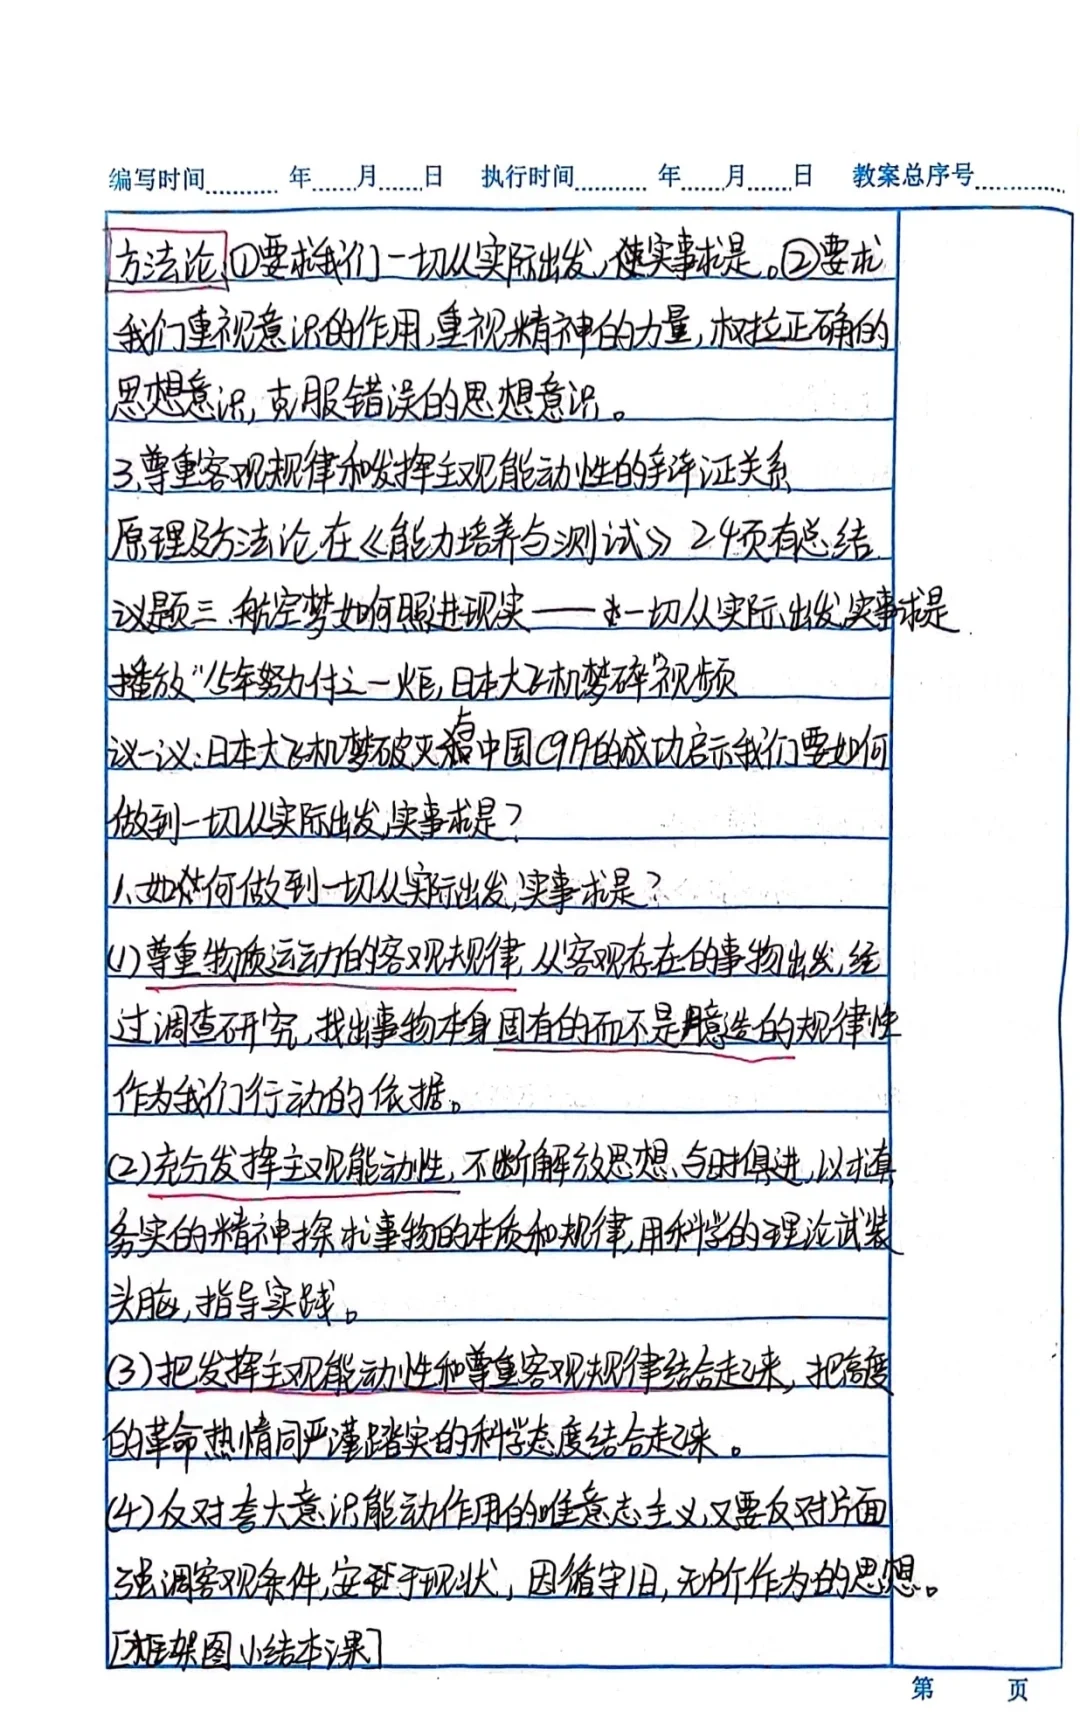 编写时间 年 月 日 执行时间 年 月 日 教案总序号
方法论 ①要求我们一切从实际出发,实事求是。②要求
我们重视意识的作用,重视精神的力量,树立正确的
思想意识,克服错误的思想意识。
3.尊重客观规律和发挥主观能动性的辩证关系
原理及方法论在《能力培养与测试》24页有总结
议题三、航空梦如何照进现实——一切从实际出发,实事求是
播放“15年努力付之一炬,日本大飞机梦碎”视频
议一议:日本大飞机梦破灭与中国C919的成功启示我们要如何
做到一切从实际出发,实事求是?
1、如何做到一切从实际出发,实事求是?
(1)尊重物质运动的客观规律,从客观存在的事物出发,经
过调查研究,找出事物本身固有的而不是臆造的规律性
作为我们行动的依据。
(2)充分发挥主观能动性,不断解放思想、与时俱进,以求真
务实的精神探求事物的本质和规律,用科学的理论武装
头脑,指导实践。
(3)把发挥主观能动性和尊重客观规律结合起来,把高度
的革命热情同严谨踏实的科学态度结合起来。
(4)反对夸大意识能动作用的唯意志主义,又要反对片面
强调客观条件,安于现状,因循守旧,无所作为的思想。
[框架图小结本课]
第 页